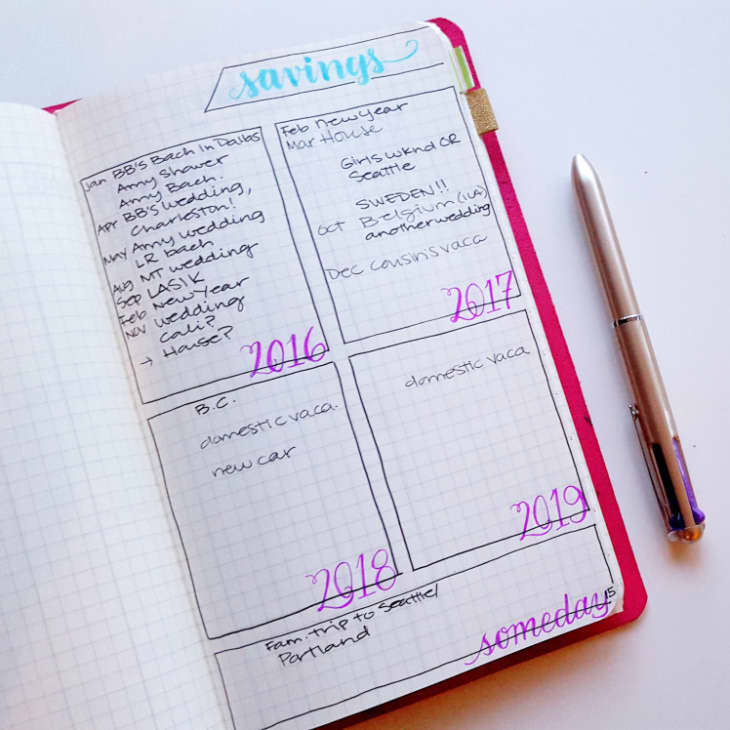 savings
Jan BB's Bach in Dallas
Amy Shower
Amy Bach.
Apr BB's wedding,
Charleston!
May Amy wedding
LR bach
Aug MT wedding
Sep LASIK
Feb New Year
Nov wedding
Cali?
→ House?
2016
Feb new year
Mar House
Girls wknd OR
Seattle
SWEDEN!!
Oct Belgium (IVA)
another wedding
Dec cousins vaca
2017
B.C.
domestic vaca.
new car
2018
domestic vaca
2019
Fam. trip to Seattle/
Portland
someday
15